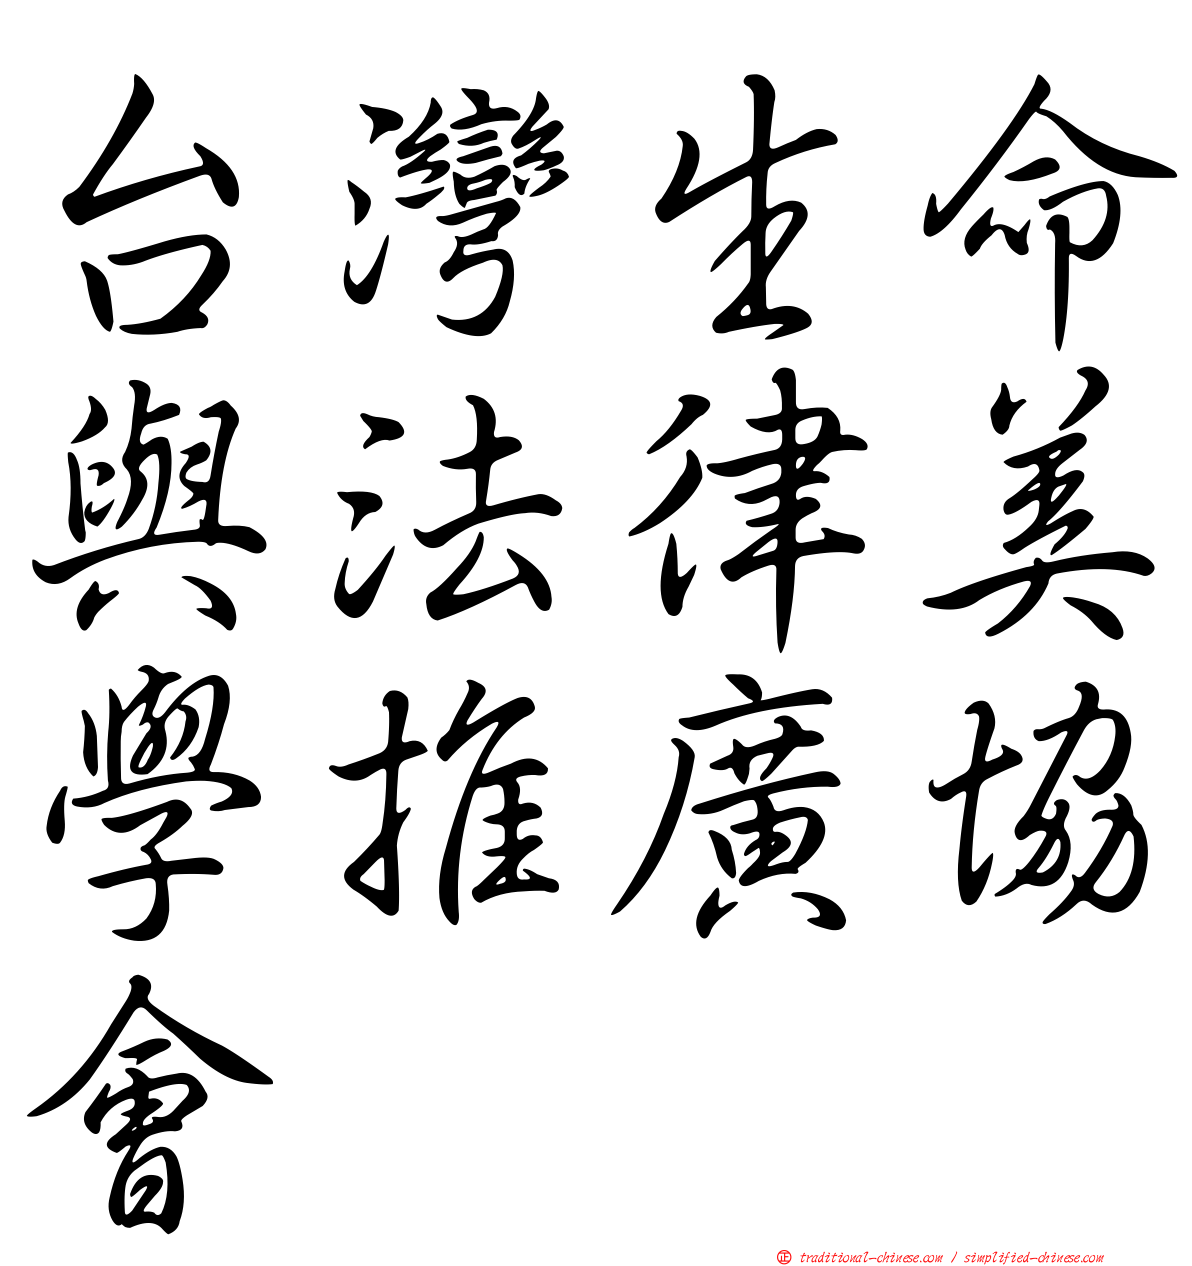 台灣生命
與法律美
學推廣協
會
正 traditional-chinese.com / simplified-chinese.com